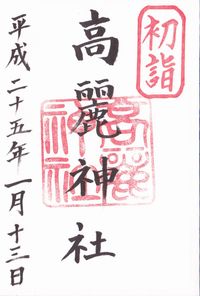 初詣
高麗神社
高麗神社
平成二十五年一月十三日